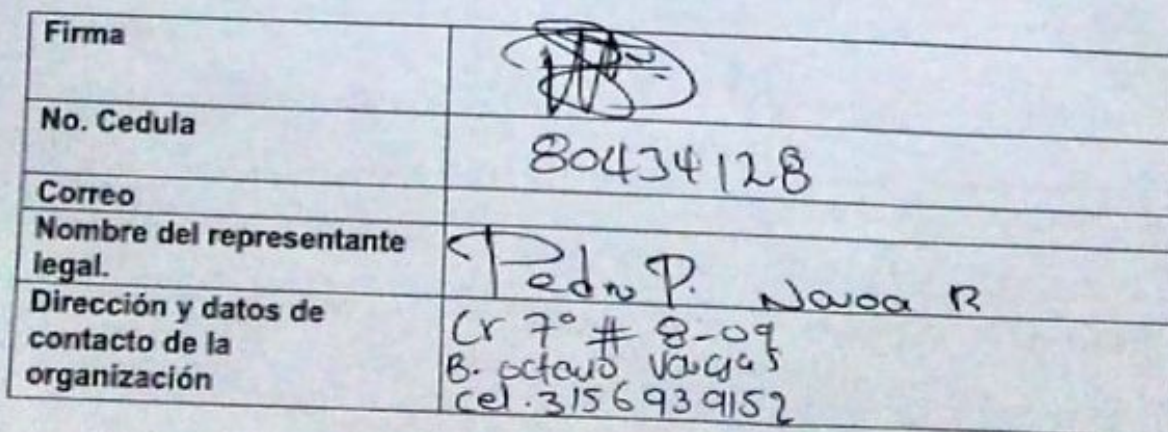 Firma
No. Cedula
80434128
Correo
Nombre del representante
legal.
Pedro P. Novoa R
Dirección y datos de
contacto de la
organización
Cr 7° # 8-09
B. octavio vargas
cel. 3156939152